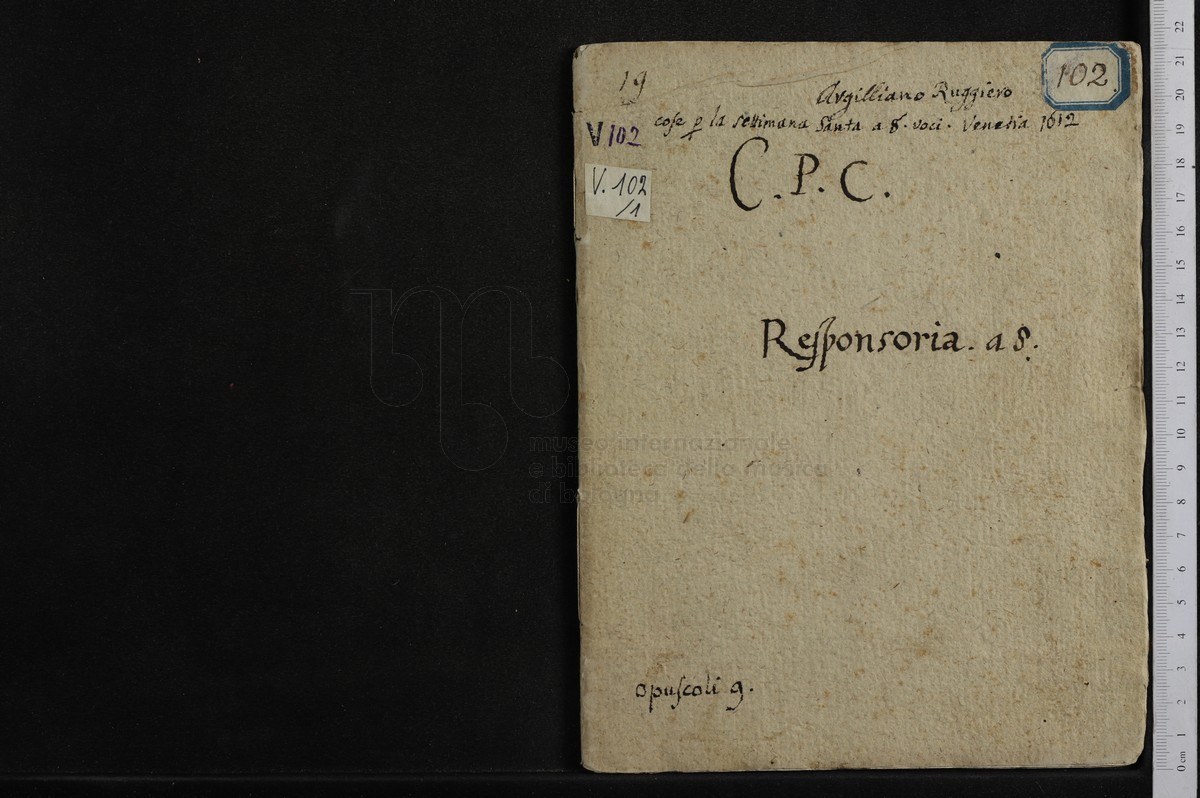 19
102.
Argilliano Ruggiero
cose p la settimana Santa a 8. voci. Venetia 1612
V102
V. 102
/1
C. P. C.
Responsoria. a 8.
museo internazionale
e biblioteca della musica
di bologna
opuscoli 9.
0 cm 1 2 3 4 5 6 7 8 9 10 11 12 13 14 15 16 17 18 19 20 21 22